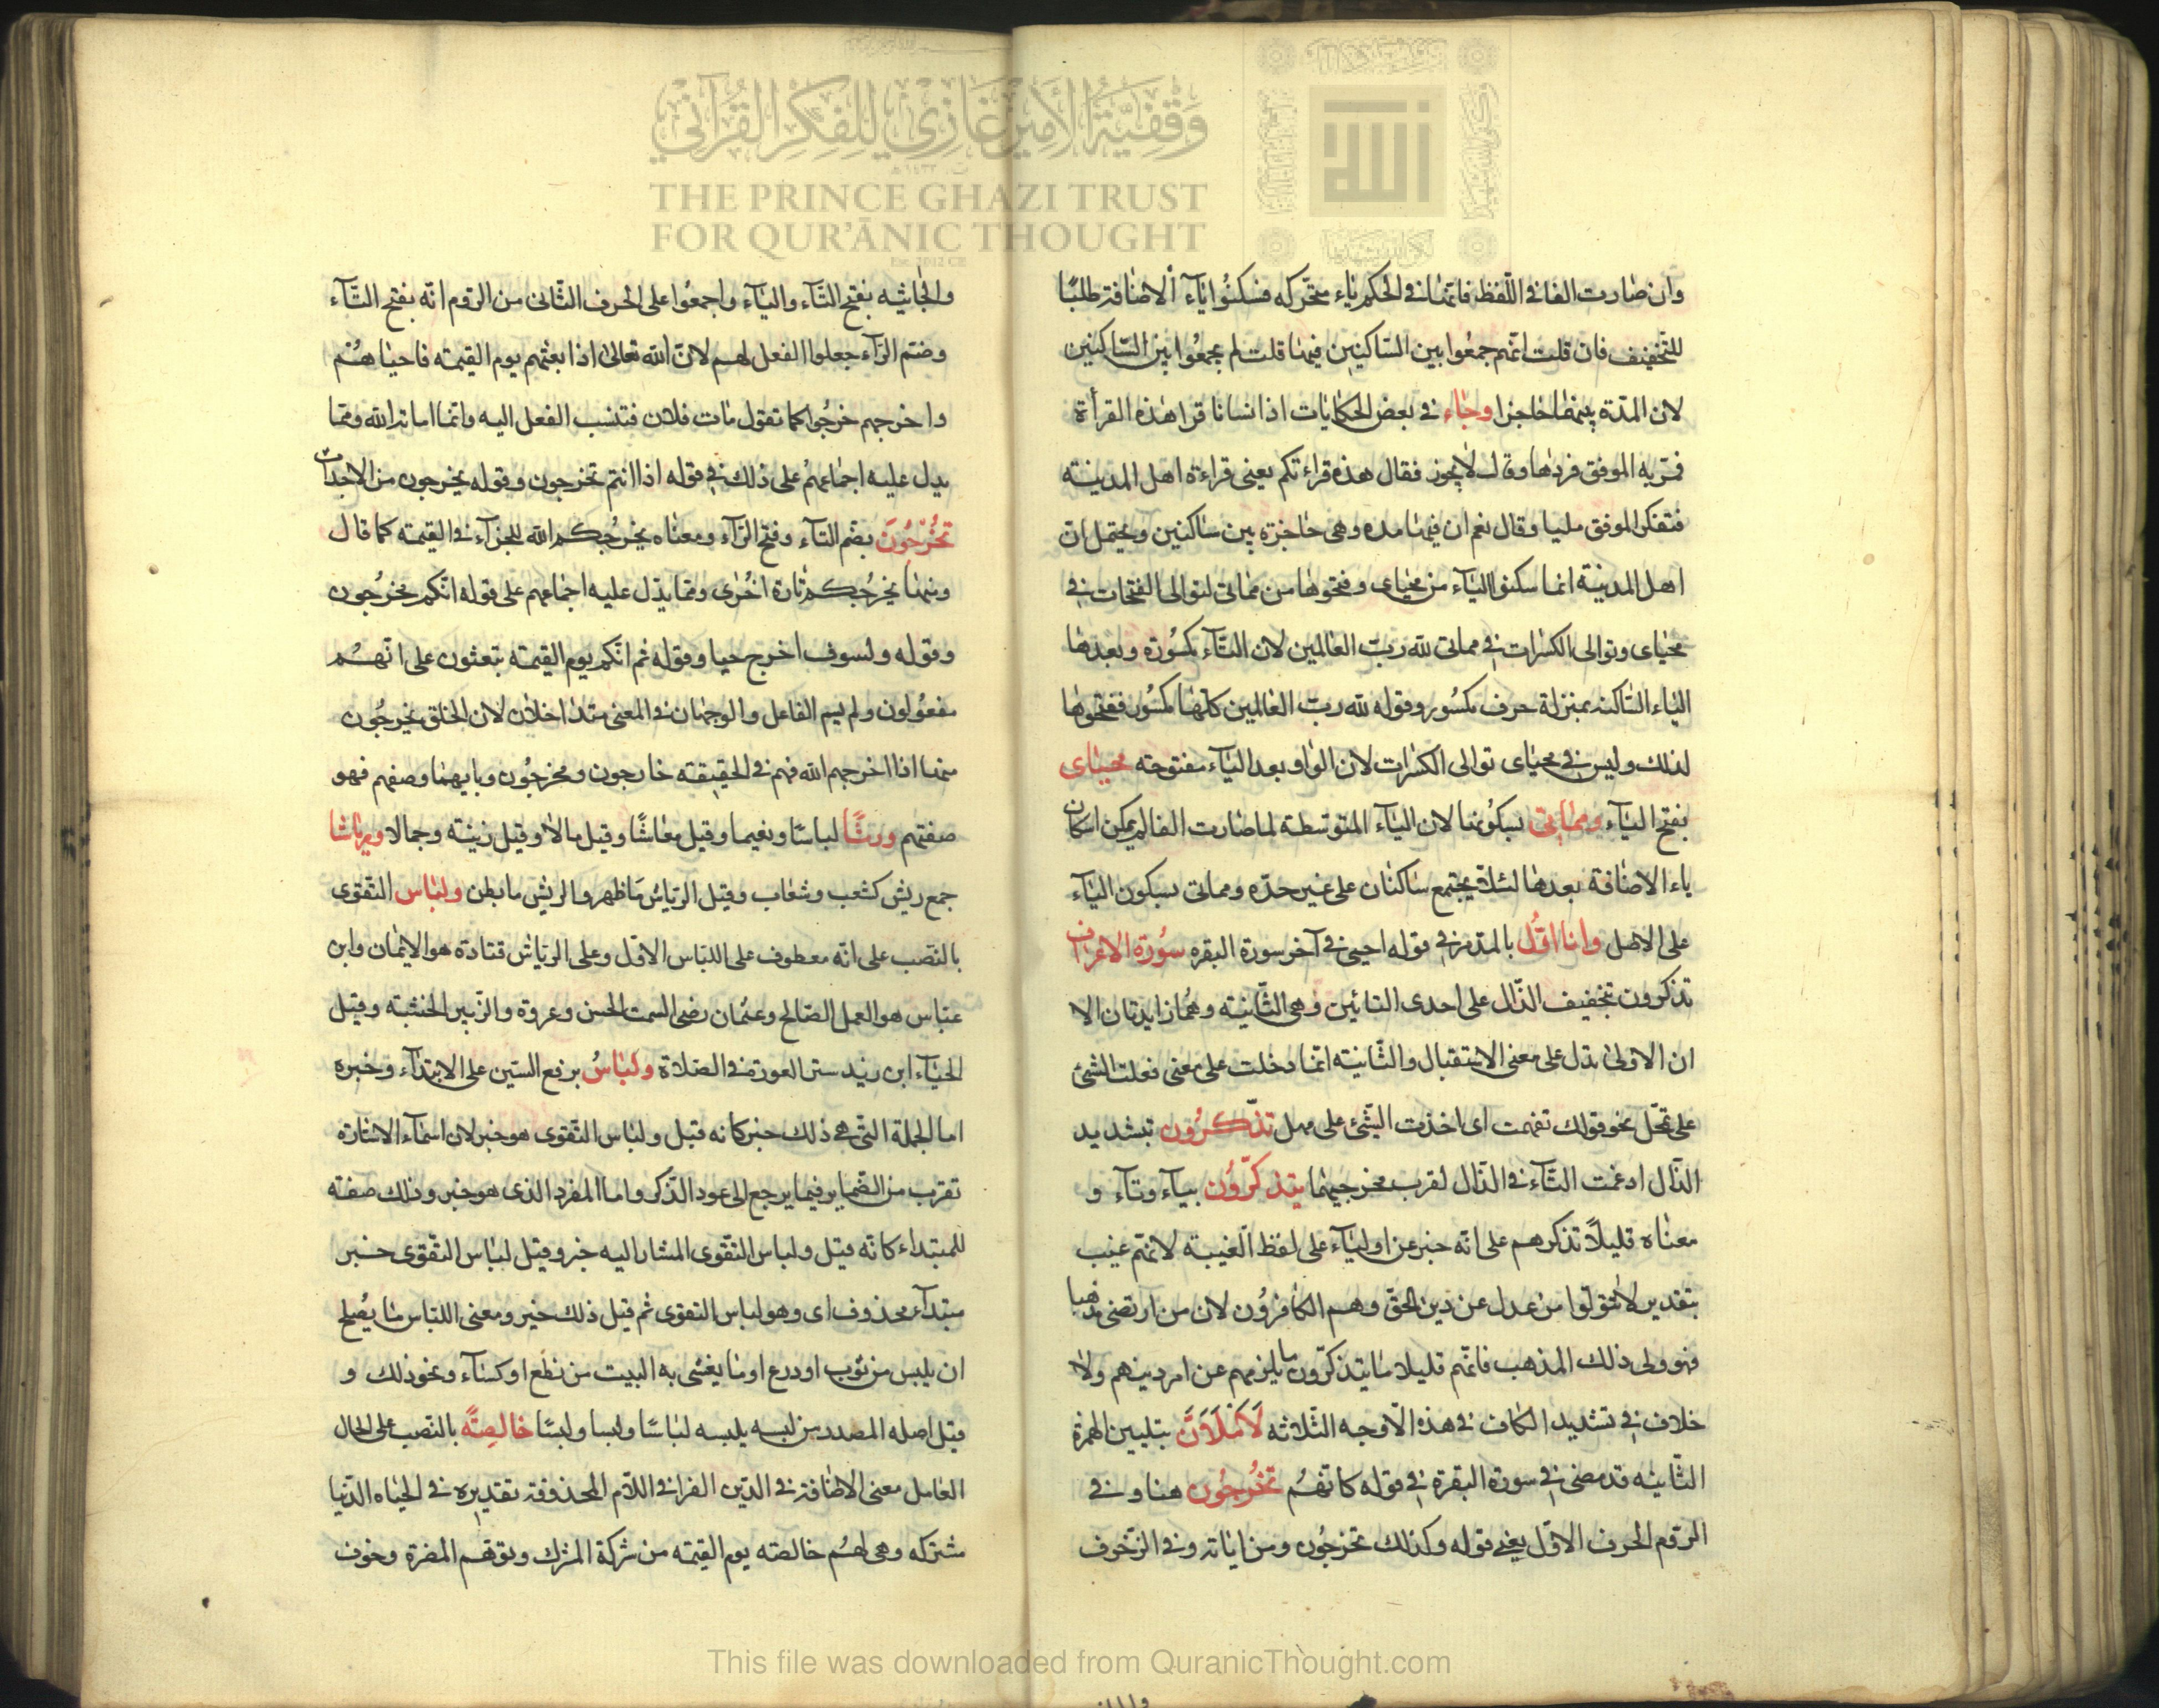 وقفية الأمير غازي للفكر القرآني
THE PRINCE GHAZI TRUST
FOR QUR'ĀNIC THOUGHT
وان صارت الفا في اللفظ فانها في الحكم ياء متحركه فسكنوا ياء الاضافة طلبًا
للتخفيف فان قلت انهم جمعوا بين الساكنين فيهنا قلت لم يجمعوا بين الساكنين
لان المدة بينهما حاجزا وجاء في بعض الحكايات اذ انسانا قرا هذه القرأة
فمر به الموفق فردها وقال لا يجوز فقال هذه قراءتكم يعنى قراءة اهل المدينة
فتفكر الموفق مليا وقال نعم ان فيها مده وهى حاجزة بين ساكنين ويحتمل ان
اهل المدينة انما سكنوا الياء من محياى وفتحوها من مماتى لتوالى الفتحات في
محياى وتوالى الكسرات في مماتى لله ربّ العالمين لان التاء مكسورة وبعدها
الياء الساكنه بمنزلة حرف مكسور وقوله لله رب العالمين كلها مكسور ففتحوها
لذلك وليس في محياى توالى الكسرات لان الواو بعد الياء مفتوحه محياى
بفتح الياء ومماتى بسكونها لان الياء المتوسطة لما صارت الفا لم يمكن اسكان
ياء الاضافة بعدها لئلا يجتمع ساكنان على غير حدّه ومماتى بسكون الياء
على الاصل وانا اوّل بالمد مر في قوله احيى في آخر سورة البقره سورة الاعراف
تذكرون بتخفيف الذّال على احدى التائين وهى الثانية وهما زايدتان الا
ان الاولى تدل على معنى الاستقبال والثانية انما دخلت على معنى فعلت الشئ
على تمحّل نحو قولك تفهمت اى اخذت الشئ على مهل تذّكرون بتشديد
الذال ادغمت التاء في الذال لقرب مخرجيهما يتذكّرون بياء وتاء و
معناه قليلاً تذكرهم على انه خبر عن اولياء على لفظ الغيبة لانهم غيب
بتقدير لا تتولوا من عدل عن دين الحقّ وهم الكافرون لان من ارتضى مذهبا
فهو ولى ذلك المذهب فانهم قليلا ما يتذكرون ما يلزمهم عن امر دينهم ولا
خلاف في تشديد الكاف في هذه الاوجه الثلاثه لَأَمْلَأَنَّ بتليين الهمزة
الثانيه قد مضى في سورة البقرة في قوله كانهم تخرجون هنا وفي
الروم الحرف الاوّل يعنى قوله وكذلك تخرجون ومن اياته وفي الزخرف
والجاثيه بفتح التاء والياء واجمعوا على الحرف الثانى من الروم انه بفتح التاء
وضم الراء جعلوا الفعل لهم لانّ الله تعالى اذا بعثهم يوم القيمة فاحياهم
واخرجهم خرجوا كما تقول مات فلان فتنسب الفعل اليه وانما اماته الله ومما
يدل عليه اجماعهم على ذلك في قوله اذا انتم تخرجون وقوله يخرجون من الاجداث
تُخْرَجُونَ بضم التاء وفتح الراء ومعناه يخرجكم الله للجزاء في القيمة كما قال
ومنها نخرجكم تارة اخرى ومما يدل عليه اجماعهم على قوله انكم مخرجون
وقوله ولسوف اخرج حيا وقوله ثم انكم يوم القيمة تبعثون على انهم
مفعولون ولم يسم الفاعل والوجهان في المعنى متداخلان لان الخلق يخرجون
منها اذا اخرجهم الله فهم في الحقيقة خارجون ومخرجون وبايهما وصفهم فهو
صفتهم وريشًا لباسًا ونعيما وقيل معاشًا وقيل مالا وقيل زينة وجمالا ورياشا
جمع ريش كشعب وشعاب وقيل الرياش ما ظهر والريش ما بطن ولباس التقوى
بالنصب على انه معطوف على اللباس الاوّل وعلى الرياش قتادة هو الايمان وابن
عباس هو العمل الصالح وعثمان رضى السمت الحسن وعروة والزبير الخشية وقيل
الحياء ابن زيد ستر العورة في الصلاة ولباسُ برفع السّين على الابتداء وخبره
اما الجملة التى هى ذلك خير كانه قيل ولباس التقوى هو خير لان اسماء الاشارة
تقرب من الضماير فيما يرجع الى عود الذكر واما المفرد الذى هو خير وذلك صفة
للمبتداء كانه قيل ولباس التقوى المشار اليه خير وقيل لباس التقوى خبر
مبتدأ محذوف اى وهو لباس التقوى ثم قيل ذلك خير ومعنى اللباس ما يُصلح
ان يلبس من ثوب او درع او ما يغشى به البيت من نطع او كساء ونحو ذلك و
قيل اصله المصدر من لبسه يلبسه لباسًا ولبسا ولبسًا خالصةً بالنصب على الحال
العامل معنى الاضافة في الذين الفرا في اللام المحذوفة تقديره في الحياه الدنيا
مشتركه وهى لهم خالصة يوم القيمه من شركة المشرك وتوهم المضرة وخوف
This file was downloaded from QuranicThought.com